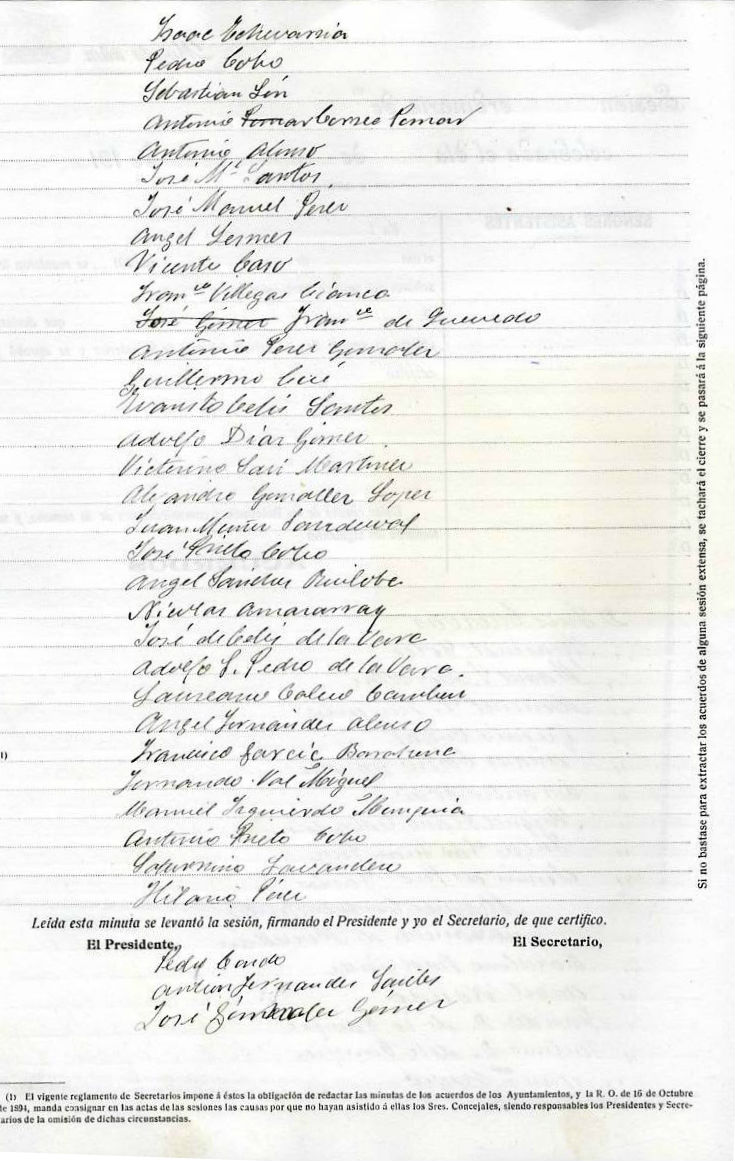 Isaac Echevarria
Pedro Cobo
Sebastian
Antonio Gomez Pomar
Antonio Alonso
José Mª Santos
José Manuel Perez
Angel
Vicente Caso
Framco Villegas Cianca
José Gómez Framco de Quevedo
Antonio Perez Gonzalez
Guillermo Cué
Evaristo Celis Santos
Adolfo Díaz Gómez
Victorino Martinez
Alejandro Gonzalez Lopez
Juan Muñiz Sandoval
José Prieto Cobo
Angel Sanchez
Nicolas Amazarray
José de Celis de la Vara
Adolfo S. Pedro de la Vara.
Laureano
Angel Fernandez Alonso
Francisco García Barahona
Fernando Val Miguel
Manuel Izquierdo Munguia
Antonio Prieto Cobo
Saturnino Lavandera
Hilario Perez
Leida esta minuta se levantó la sesión, firmando el Presidente y yo el Secretario, de que certifico.
El Presidente, El Secretario,
Pedro Cando
Antonio Fernandez
José Gonzalez Gómez
(1) El vigente reglamento de Secretarios impone á éstos la obligación de redactar las minutas de los acuerdos de los Ayuntamientos, y la R. O. de 16 de Octubre
de 1894, manda consignar en las actas de las sesiones las causas por que no hayan asistido á ellas los Sres. Concejales, siendo responsables los Presidentes y Secre-
arios de la omisión de dichas circunstancias.
Si no bastase para extractar los acuerdos de alguna sesión extensa, se tachará el cierre y se pasará á la siguiente página.